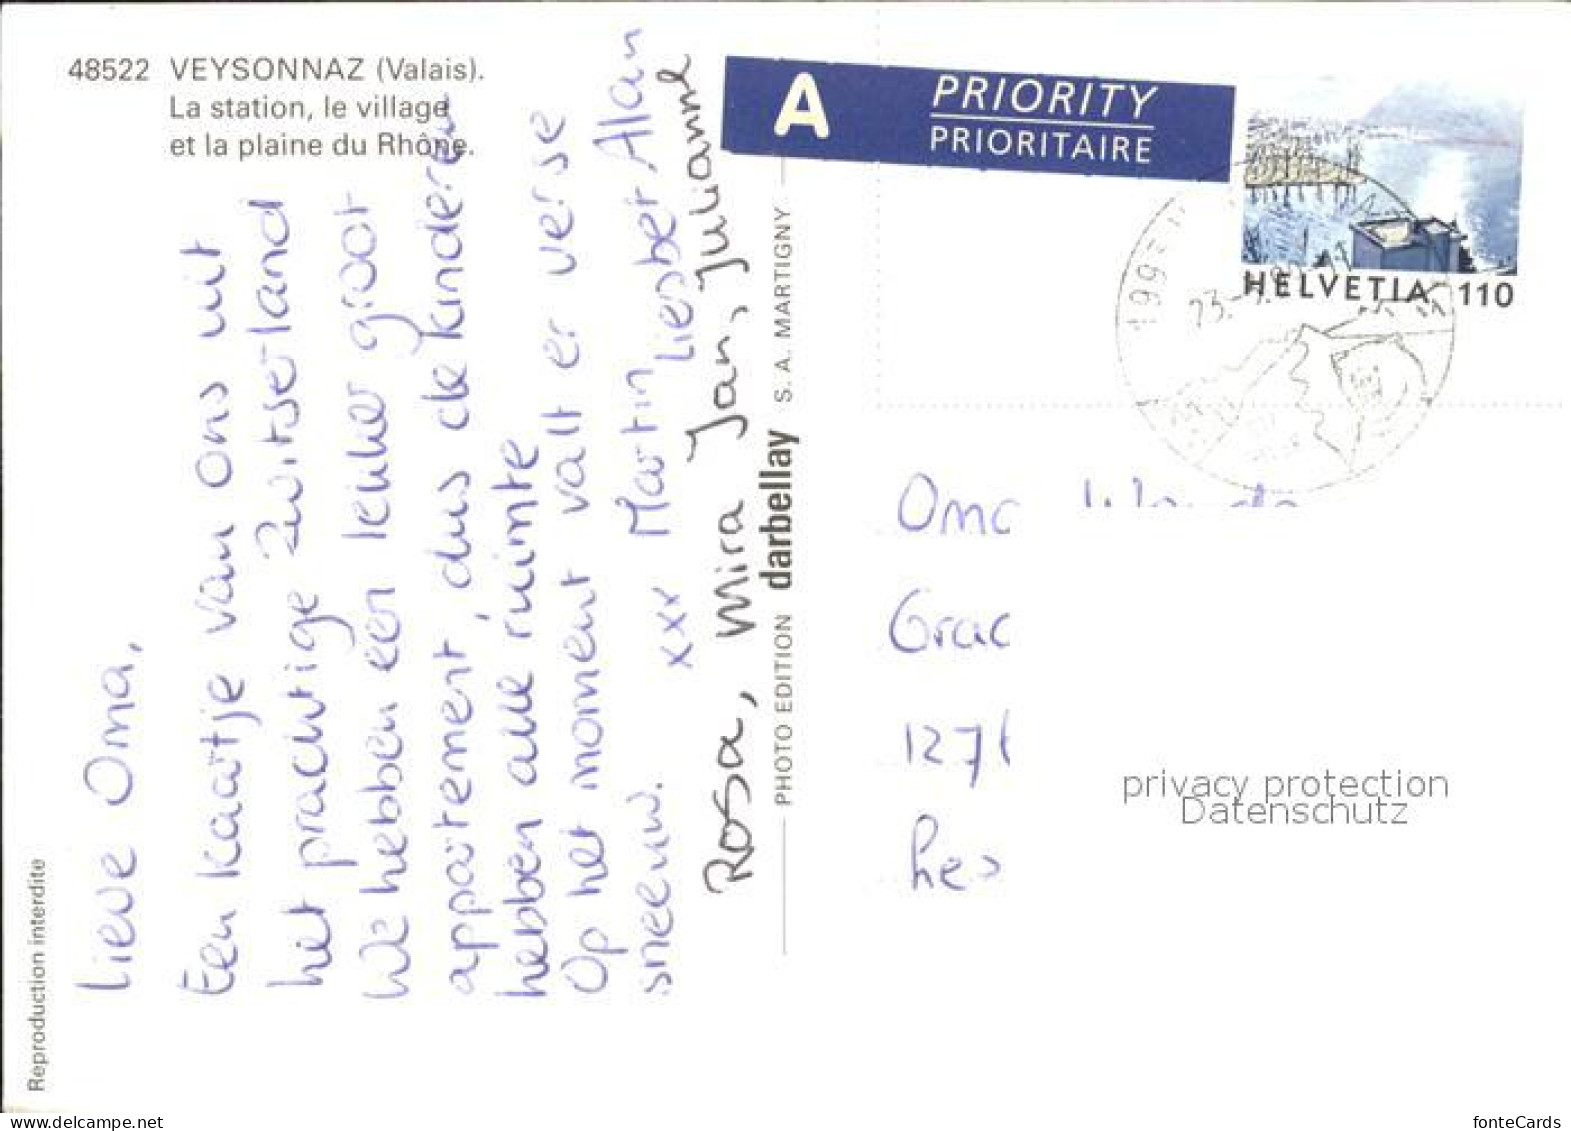 48522 VEYSONNAZ (Valais).
La station, le village
et la plaine du Rhône.
Reproduction interdite
Lieve Oma,
Een kaartje van ons uit
het prachtige Zwitserland
We hebben een lekker groot
appartement, dus de kinderen
hebben alle ruimte
Op het moment valt er verse
sneeuw. xxx Martin Liesbet Alan
Rosa, Mira Jan, Julianne
PHOTO EDITION darbellay S. A. MARTIGNY
A PRIORITY
PRIORITAIRE
HELVETIA 110
1993
23.
Oma
Grac
1271
privacy protection
Datenschutz
www.delcampe.net
fonteCards